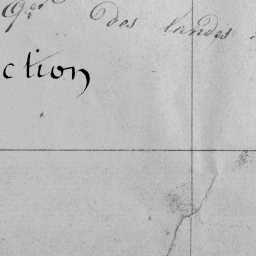 des landes
ction